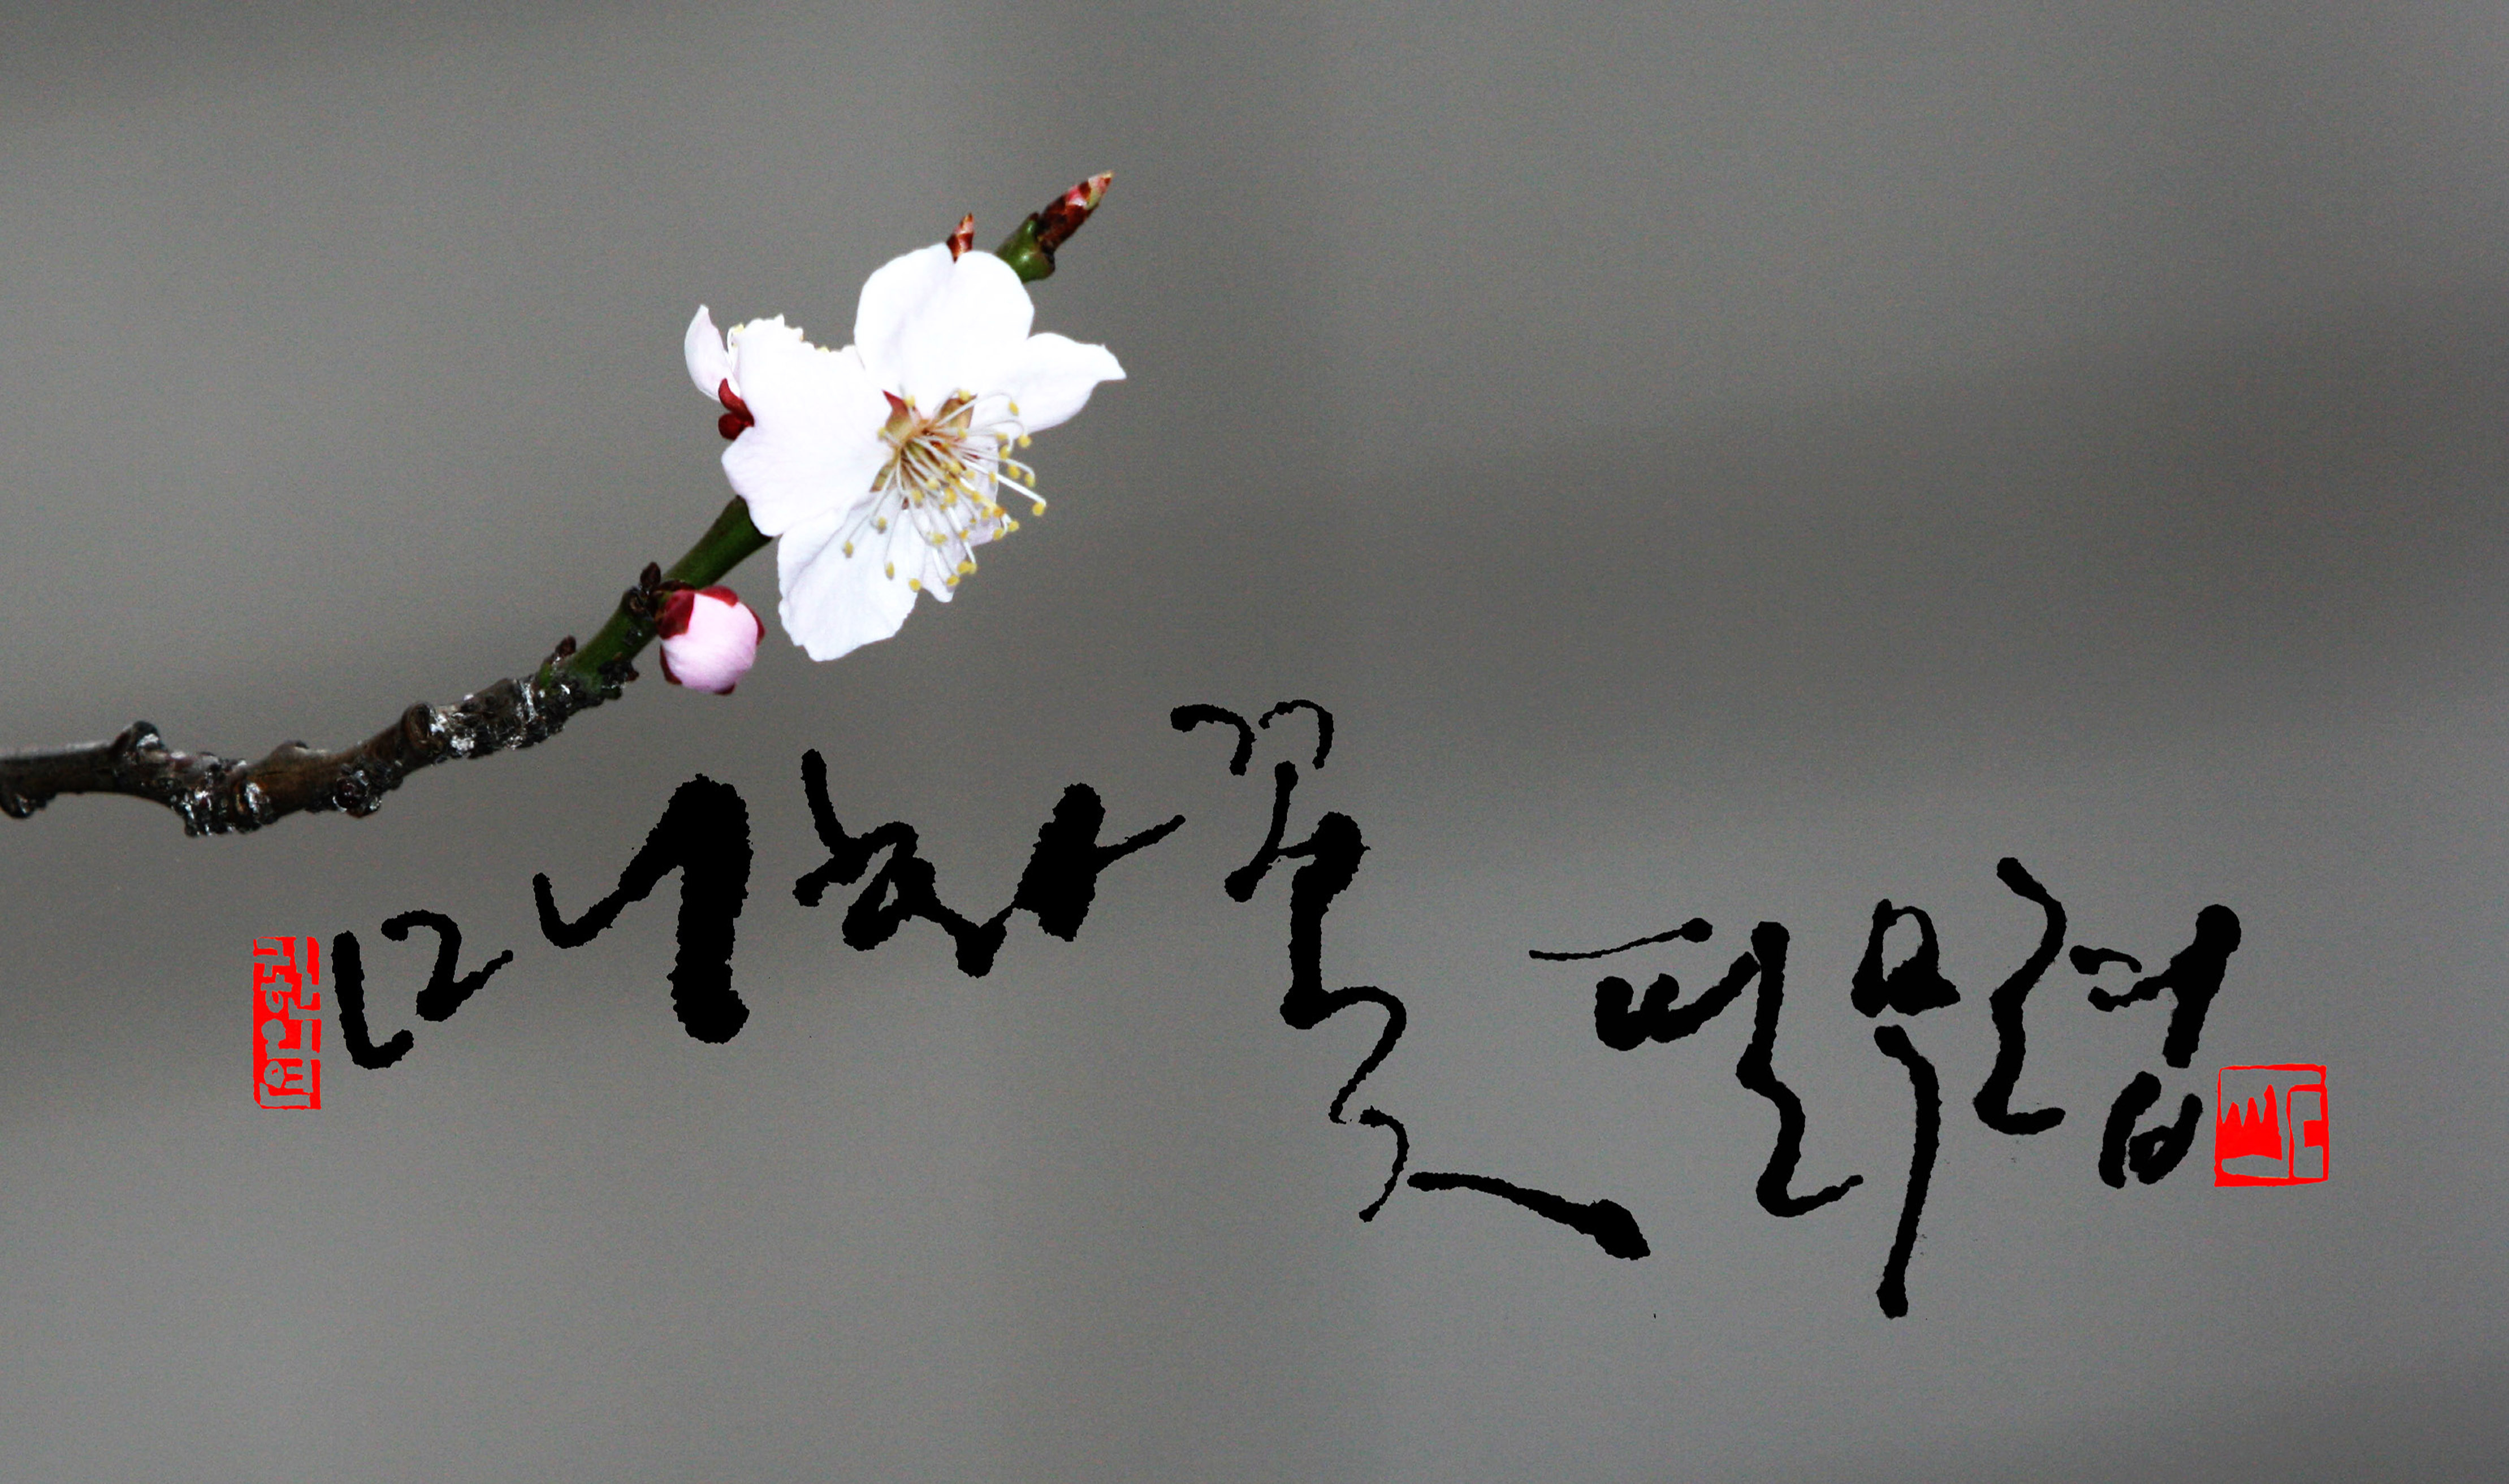 매화꽃 필 무렵